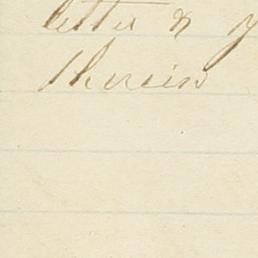 letter & y
therein